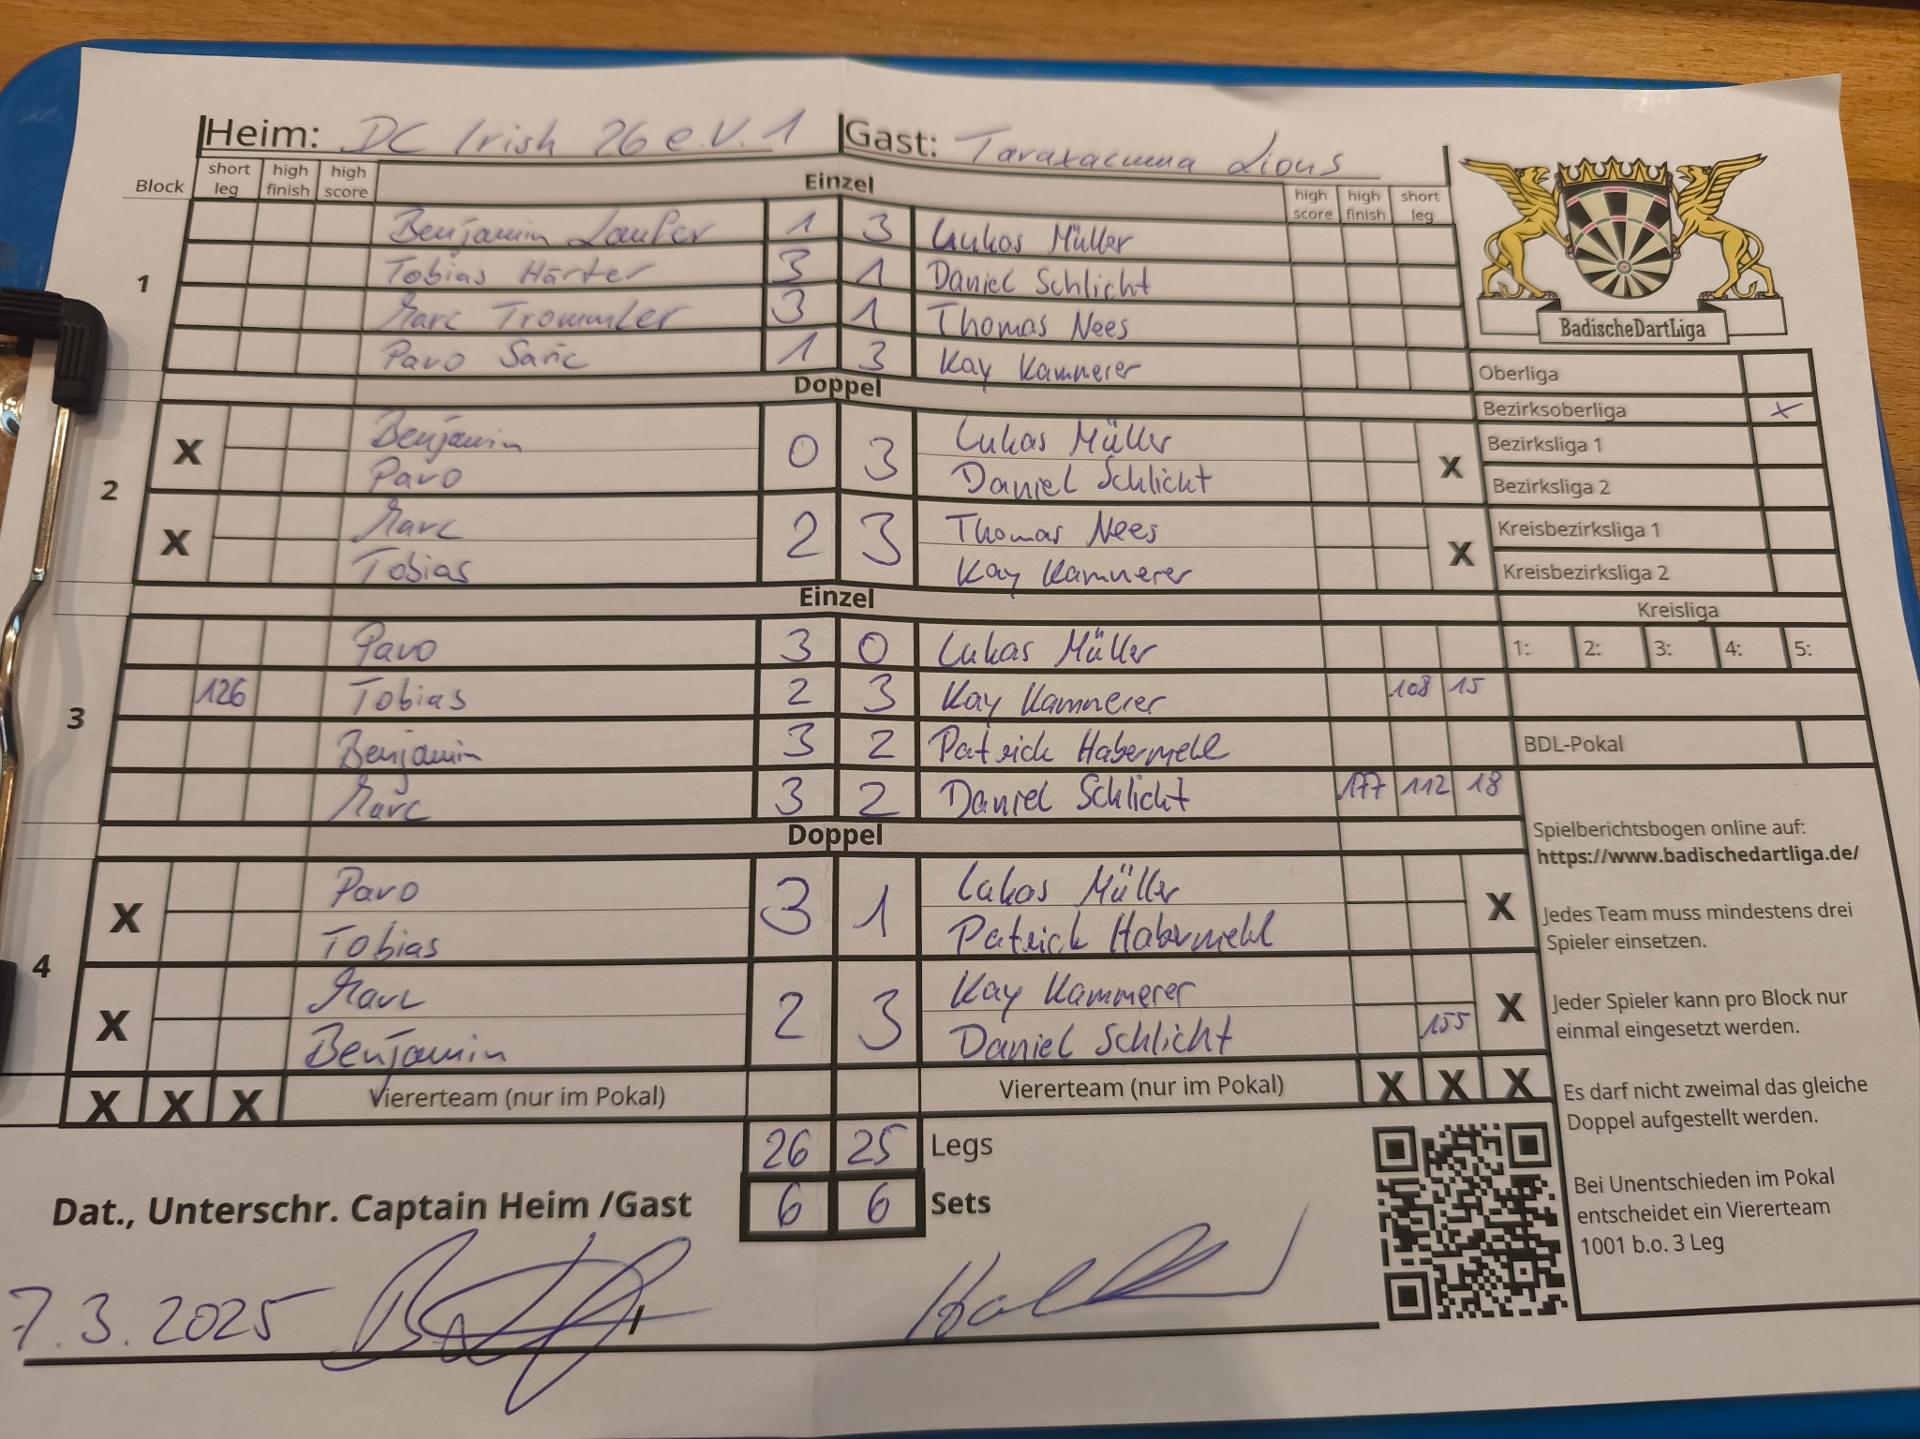 Heim: DC Irish 26 e.V. 1 Gast: Taraxacuma Lions
Block short leg high finish high score Einzel high score high finish short leg
1
Benjamin Laufer 1 3 Lukas Müller
Tobias Härter 3 1 Daniel Schlicht
Marc Trommler 3 1 Thomas Nees
Pavo Saric 1 3 Kay Kammerer
Doppel
2
X Benjamin 0 3 Lukas Müller X
Pavo Daniel Schlicht
X Marc 2 3 Thomas Nees X
Tobias Kay Kammerer
Einzel
3
Pavo 3 0 Lukas Müller
126 Tobias 2 3 Kay Kammerer 108 15
Benjamin 3 2 Patrick Habermehl
Marc 3 2 Daniel Schlicht 177 112 18
Doppel
4
X Pavo 3 1 Lukas Müller X
Tobias Patrick Habermehl
X Marc 2 3 Kay Kammerer X
Benjamin Daniel Schlicht 155
X X X Viererteam (nur im Pokal) Viererteam (nur im Pokal) X X X
26 25 Legs
6 6 Sets
Dat., Unterschr. Captain Heim /Gast
7.3.2025
BadischeDartLiga
Oberliga
Bezirksoberliga x
Bezirksliga 1
Bezirksliga 2
Kreisbezirksliga 1
Kreisbezirksliga 2
Kreisliga
1: 2: 3: 4: 5:
BDL-Pokal
Spielberichtsbogen online auf:
https://www.badischedartliga.de/
Jedes Team muss mindestens drei
Spieler einsetzen.
Jeder Spieler kann pro Block nur
einmal eingesetzt werden.
Es darf nicht zweimal das gleiche
Doppel aufgestellt werden.
Bei Unentschieden im Pokal
entscheidet ein Viererteam
1001 b.o. 3 Leg